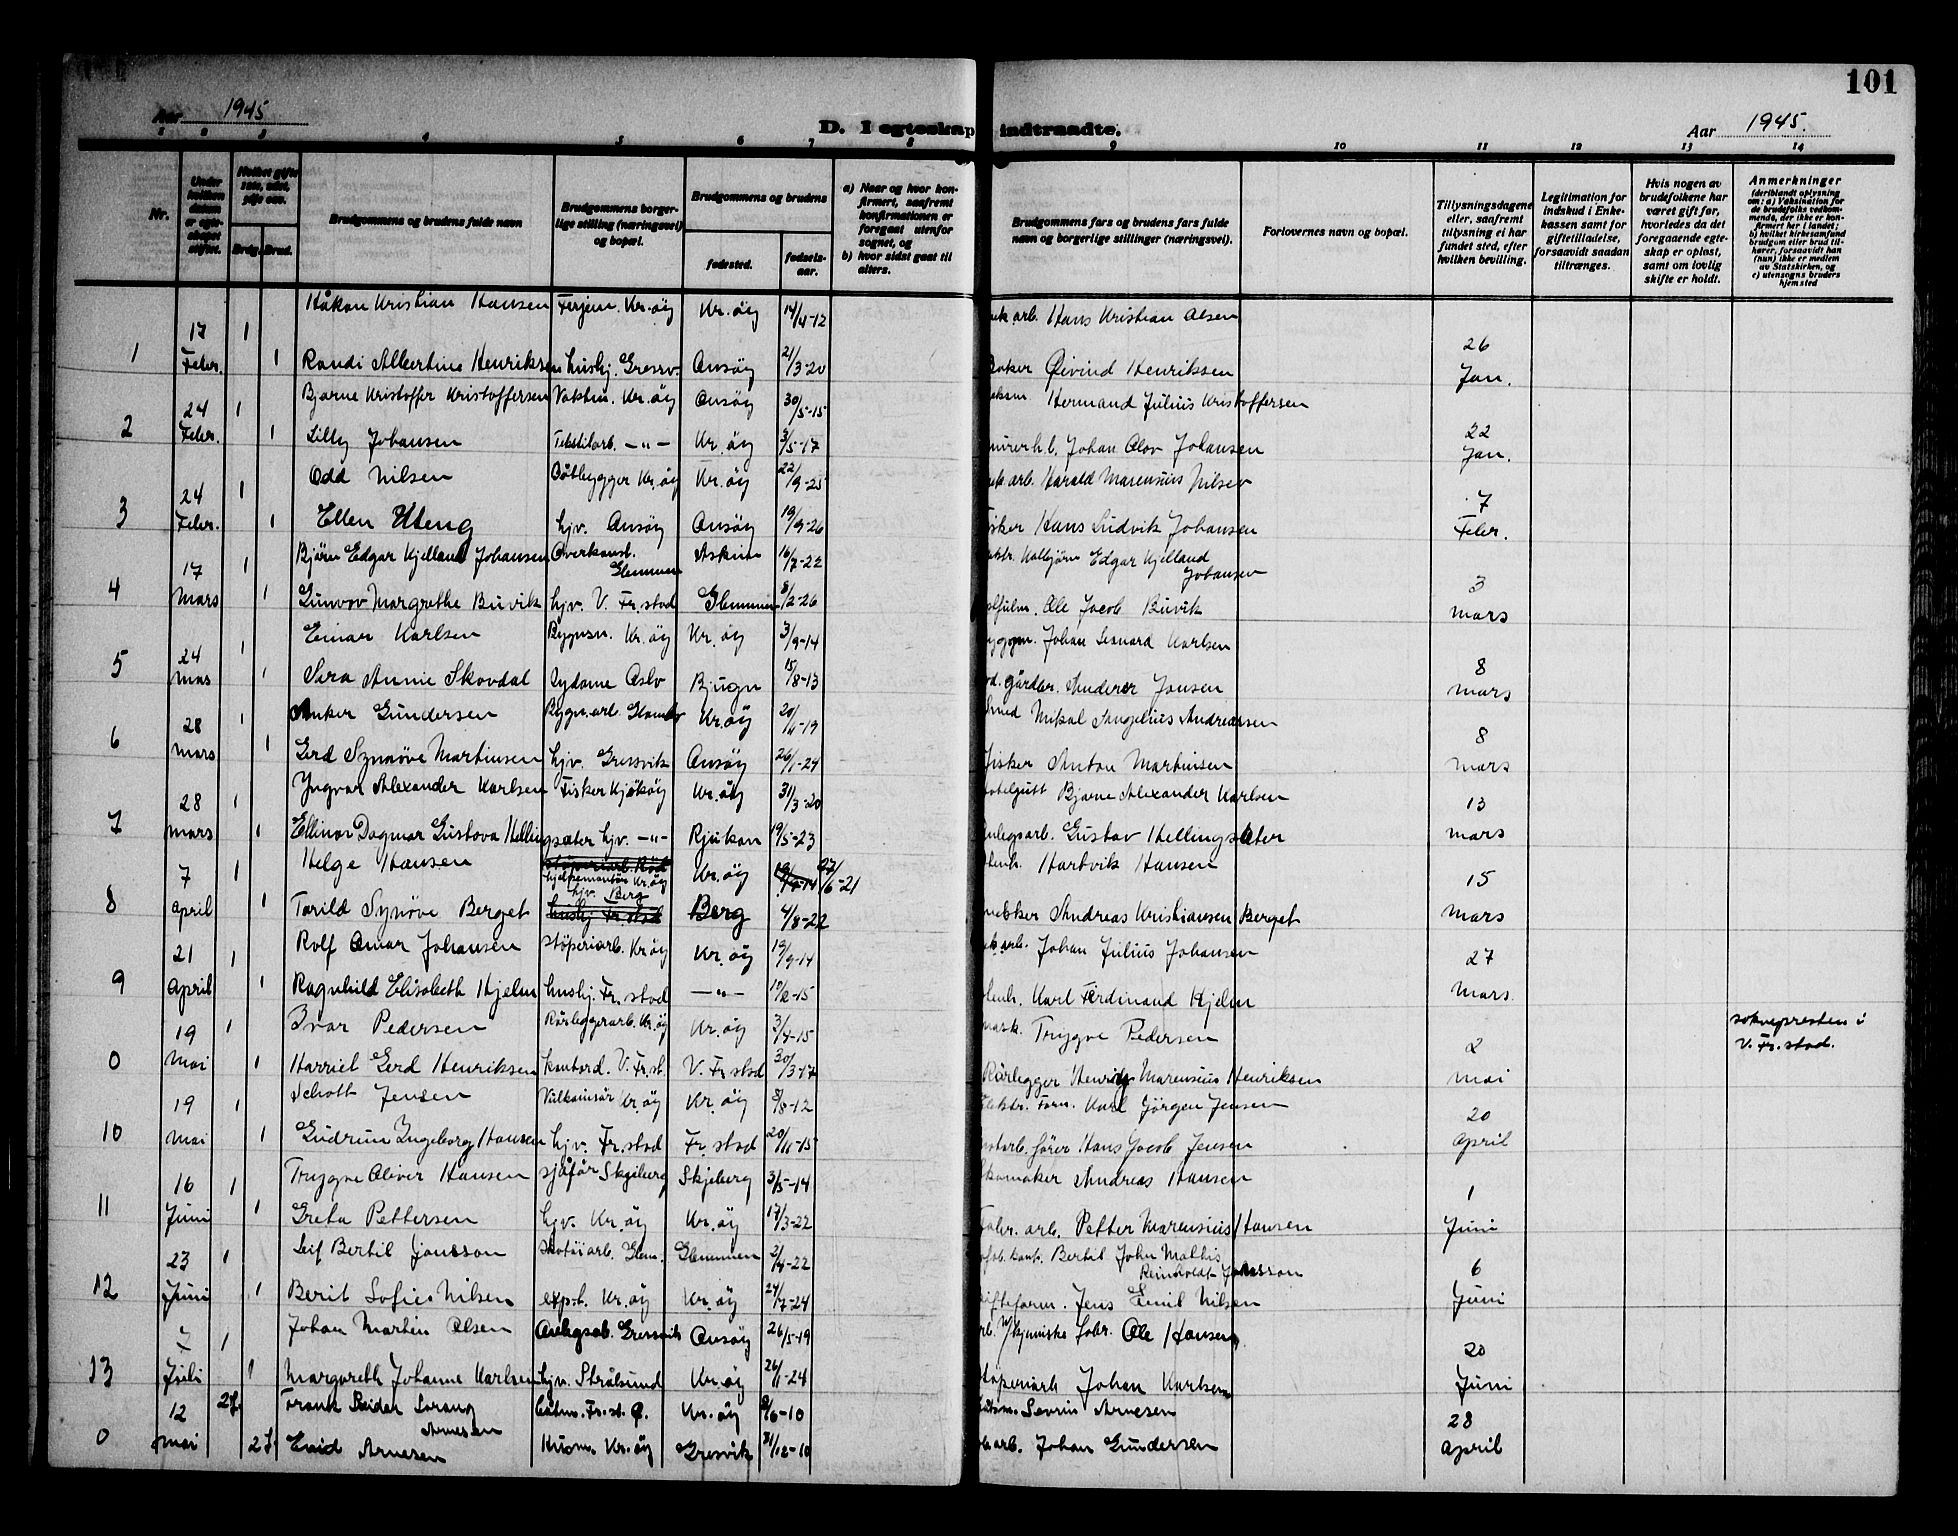 101
Aar 1945
D. I egteskap indtraadte.
Aar 1945.
1 2 3 4 5 6 7 8 9 10 11 12 13 14
Nr.
Under hvilken datum er egteskapet stiftet.
Hvilket gifte
Brdg. Brud.
Brudgommens og brudens fulde navn
Brudgommens borgerlige stilling (næringsvei) og bopæl.
Brudgommens og brudens
fødested.
fødselsaar.
a) Naar og hvor konfirmert, saafremt konfirmationen er foregaat utenfor sognet, og
b) hvor sidst gaat til alters.
Brudgommens fars og brudens fars fulde navn og borgerlige stillinger (næringsvei).
Forlovernes navn og bopæl.
Tillysningsdagene eller, saafremt tillysning ei har fundet sted, efter hvilken bevilling.
Legitimation for indskud i Enkekassen samt for giftetilladelse, forsaavidt saadan tiltrænges.
Hvis nogen av brudefolkene har været gift før, hvorledes da det foregaaende egteskap er opløst, samt om lovlig skifte er holdt.
Anmerkninger
(deriblandt oplysning om: a) Vaksination for de brudefolks vedkommende, der ikke er konfirmert her i landet; b) hvilket kirkesamfund brudgom eller brud tilhører, forsaavidt han (hun) ikke er medlem av Statskirken, og c) utensogns bruders hjemsted
1 17 Febr. 1 Håkon Kristian Hansen Fergem. Kr.øy Kr.øy 14/4-12 Hans Kristian Olsen 26 Jan.
1 Randi Albertine Henriksen hushj. Gressv. Onsøy 21/3-20 Baker Øivind Henriksen
2 24 Febr. 1 Bjarne Kristoffer Kristoffersen Vaktm. Kr.øy Onsøy 30/5-15 Hermand Julius Kristoffersen 22 Jan.
1 Lilly Johansen Tekstilarb. -"- Kr.øy 3/5-17 Johan Olov Johansen
3 24 Febr. 1 Odd Nilsen Båtbygger Kr.øy Kr.øy 22/9-25 arb. Harald Marensius Nilsen 7 Febr.
1 Ellen Uteng hjv. Onsøy Onsøy 19/9-26 Fisker Hans Ludvik Johansen
4 17 Mars 1 Bjørn Edgar Kjelland Johansen Overkonst. Glemmen Askim 16/7-22 Kolbjørn Edgar Kjelland Johansen 3 Mars
1 Gunvor Margrethe Buvik hjv. V. Fr.stad Glemmen 8/2-26 Ole Jacob Buvik
5 24 Mars 1 Einar Karlsen Bygnsn. Kr.øy Kr.øy 3/9-14 Johan Leonard Karlsen 8 Mars
1 Sara Annie Skovdal Sydame Oslo Bjugn 15/8-13 gårdbr. Anderer Jensen
6 28 Mars 1 Anker Gundersen Bygn.arb. Kr.øy Mikal Angelius Andreassen 8 Mars
1 Gerd Synnøve Martinsen hjv. Gressvik Onsøy 26/1-24 Fisker Anton Martinsen
7 28 Mars 1 Yngvar Alexander Karlsen Fisker Kjøkøy Kr.øy 31/3-20 Bjarne Alexander Karlsen 13 Mars
1 Ellinor Dagmar Gustava Hellingsæter hjv. -"- Rjukan 19/5-23 Anlegsarb. Gustav Hellingsæter
8 7 April 1 Helge Hansen støperiarb. Rød hjelpemontør Kr.øy Kr.øy 27/6-21 Hartvik Hansen 15 Mars
1 Torild Synøve Berget hjv. Berg hushj. Fr.stad Berg 4/8-22 Andreas Kristiansen Berget
9 21 April 1 Rolf Omar Johansen støperiarb. Kr.øy Kr.øy 19/9-14 arb. Johan Julius Johansen 27 Mars.
1 Ragnhild Elisabeth Hjelm hushj. Fr.stad -"- Karl Ferdinand Hjelm
0 19 Mai 1 Ivar Pedersen Rørleggerarb. Kr.øy Kr.øy 3/4-15 Trygve Pedersen 2 Mai sokneprestem i V. Fr.stad.
1 Harriet Gerd Henriksen kontord. V. Fr.st. V. Fr.stad 30/3-17 Rørlegger Henrik Marensius Henriksen
10 19 Mai 1 Schott Jensen Vulkanisør Kr.øy Kr.øy 8/8-12 Elektr. Form. Karl Jørgen Jensen 20 April
1 Gudrun Ingeborg Hansen hjv. Fr.stad Fr.stad 20/11-15 Hans Jacob Jensen
11 16 Juni 1 Trygve Oliver Hansen sjåfør Skjeberg Skjeberg 3/5-14 Skomaker Andreas Hansen 1 Juni
1 Greta Pettersen hjv. Kr.øy Kr.øy 17/3-22 Fabr. arb. Petter Marensius Hansen
12 23 Juni 1 Leif Bertil Jonsson Skotøiarb. Glem. Glemmen 2/4-22 Bertil John Mathis Reinholdt Jonsson 6 Juni
1 Berit Sofie Nilsen exp.t. Kr.øy Kr.øy 24/7-24 Jens Emil Nilsen
13 7 Juli 1 Johan Martin Olsen Anlegsab. Gressvik Onsøy 26/5-19 arb. v/kjemiske fabr. Ole Hansen 20 Juni
1 Margareth Johanne Karlsen hjv. Strålsund Kr.øy 26/1-24 Støperiarb Johan Karlsen
0 12 Mai 2g. Frank Reidar Lorang Arnesen Kr.øy 8/6-10 Sevrin Arnesen 28 April
2g. Enid Arnesen Husm. Kr.øy Gresvik 31/12-10 arb. Johan Gundersen